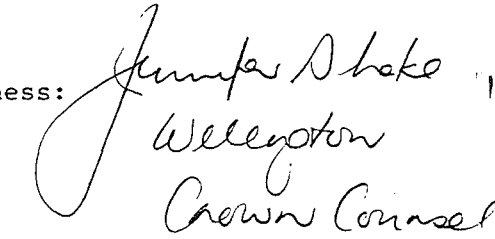 ess: Jennifer S Lake
Wellington
Crown Counsel